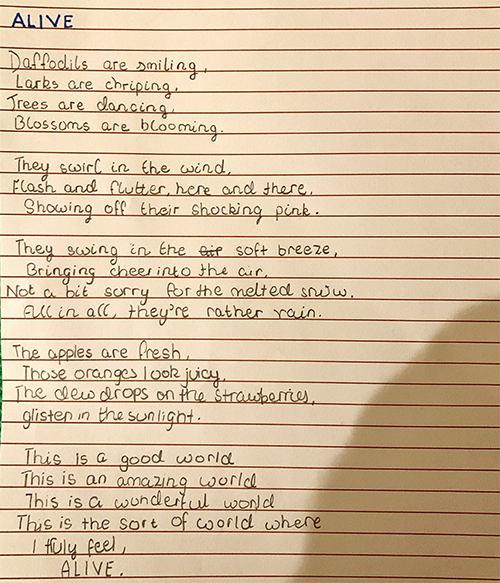 ALIVE
Daffodils are smiling,
Larks are chriping,
Trees are dancing,
Blossoms are blooming.
They swirl in the wind,
Flash and flutter, here and there,
Showing off their shocking pink.
They swing in the air soft breeze,
Bringing cheer into the air,
Not a bit sorry for the melted snow.
All in all, they're rather vain.
The apples are fresh,
Those oranges look juicy,
The dew drops on the strawberries,
glisten in the sunlight.
This is a good world
This is an amazing world
This is a wonderful world
This is the sort of world where
I truly feel,
ALIVE.